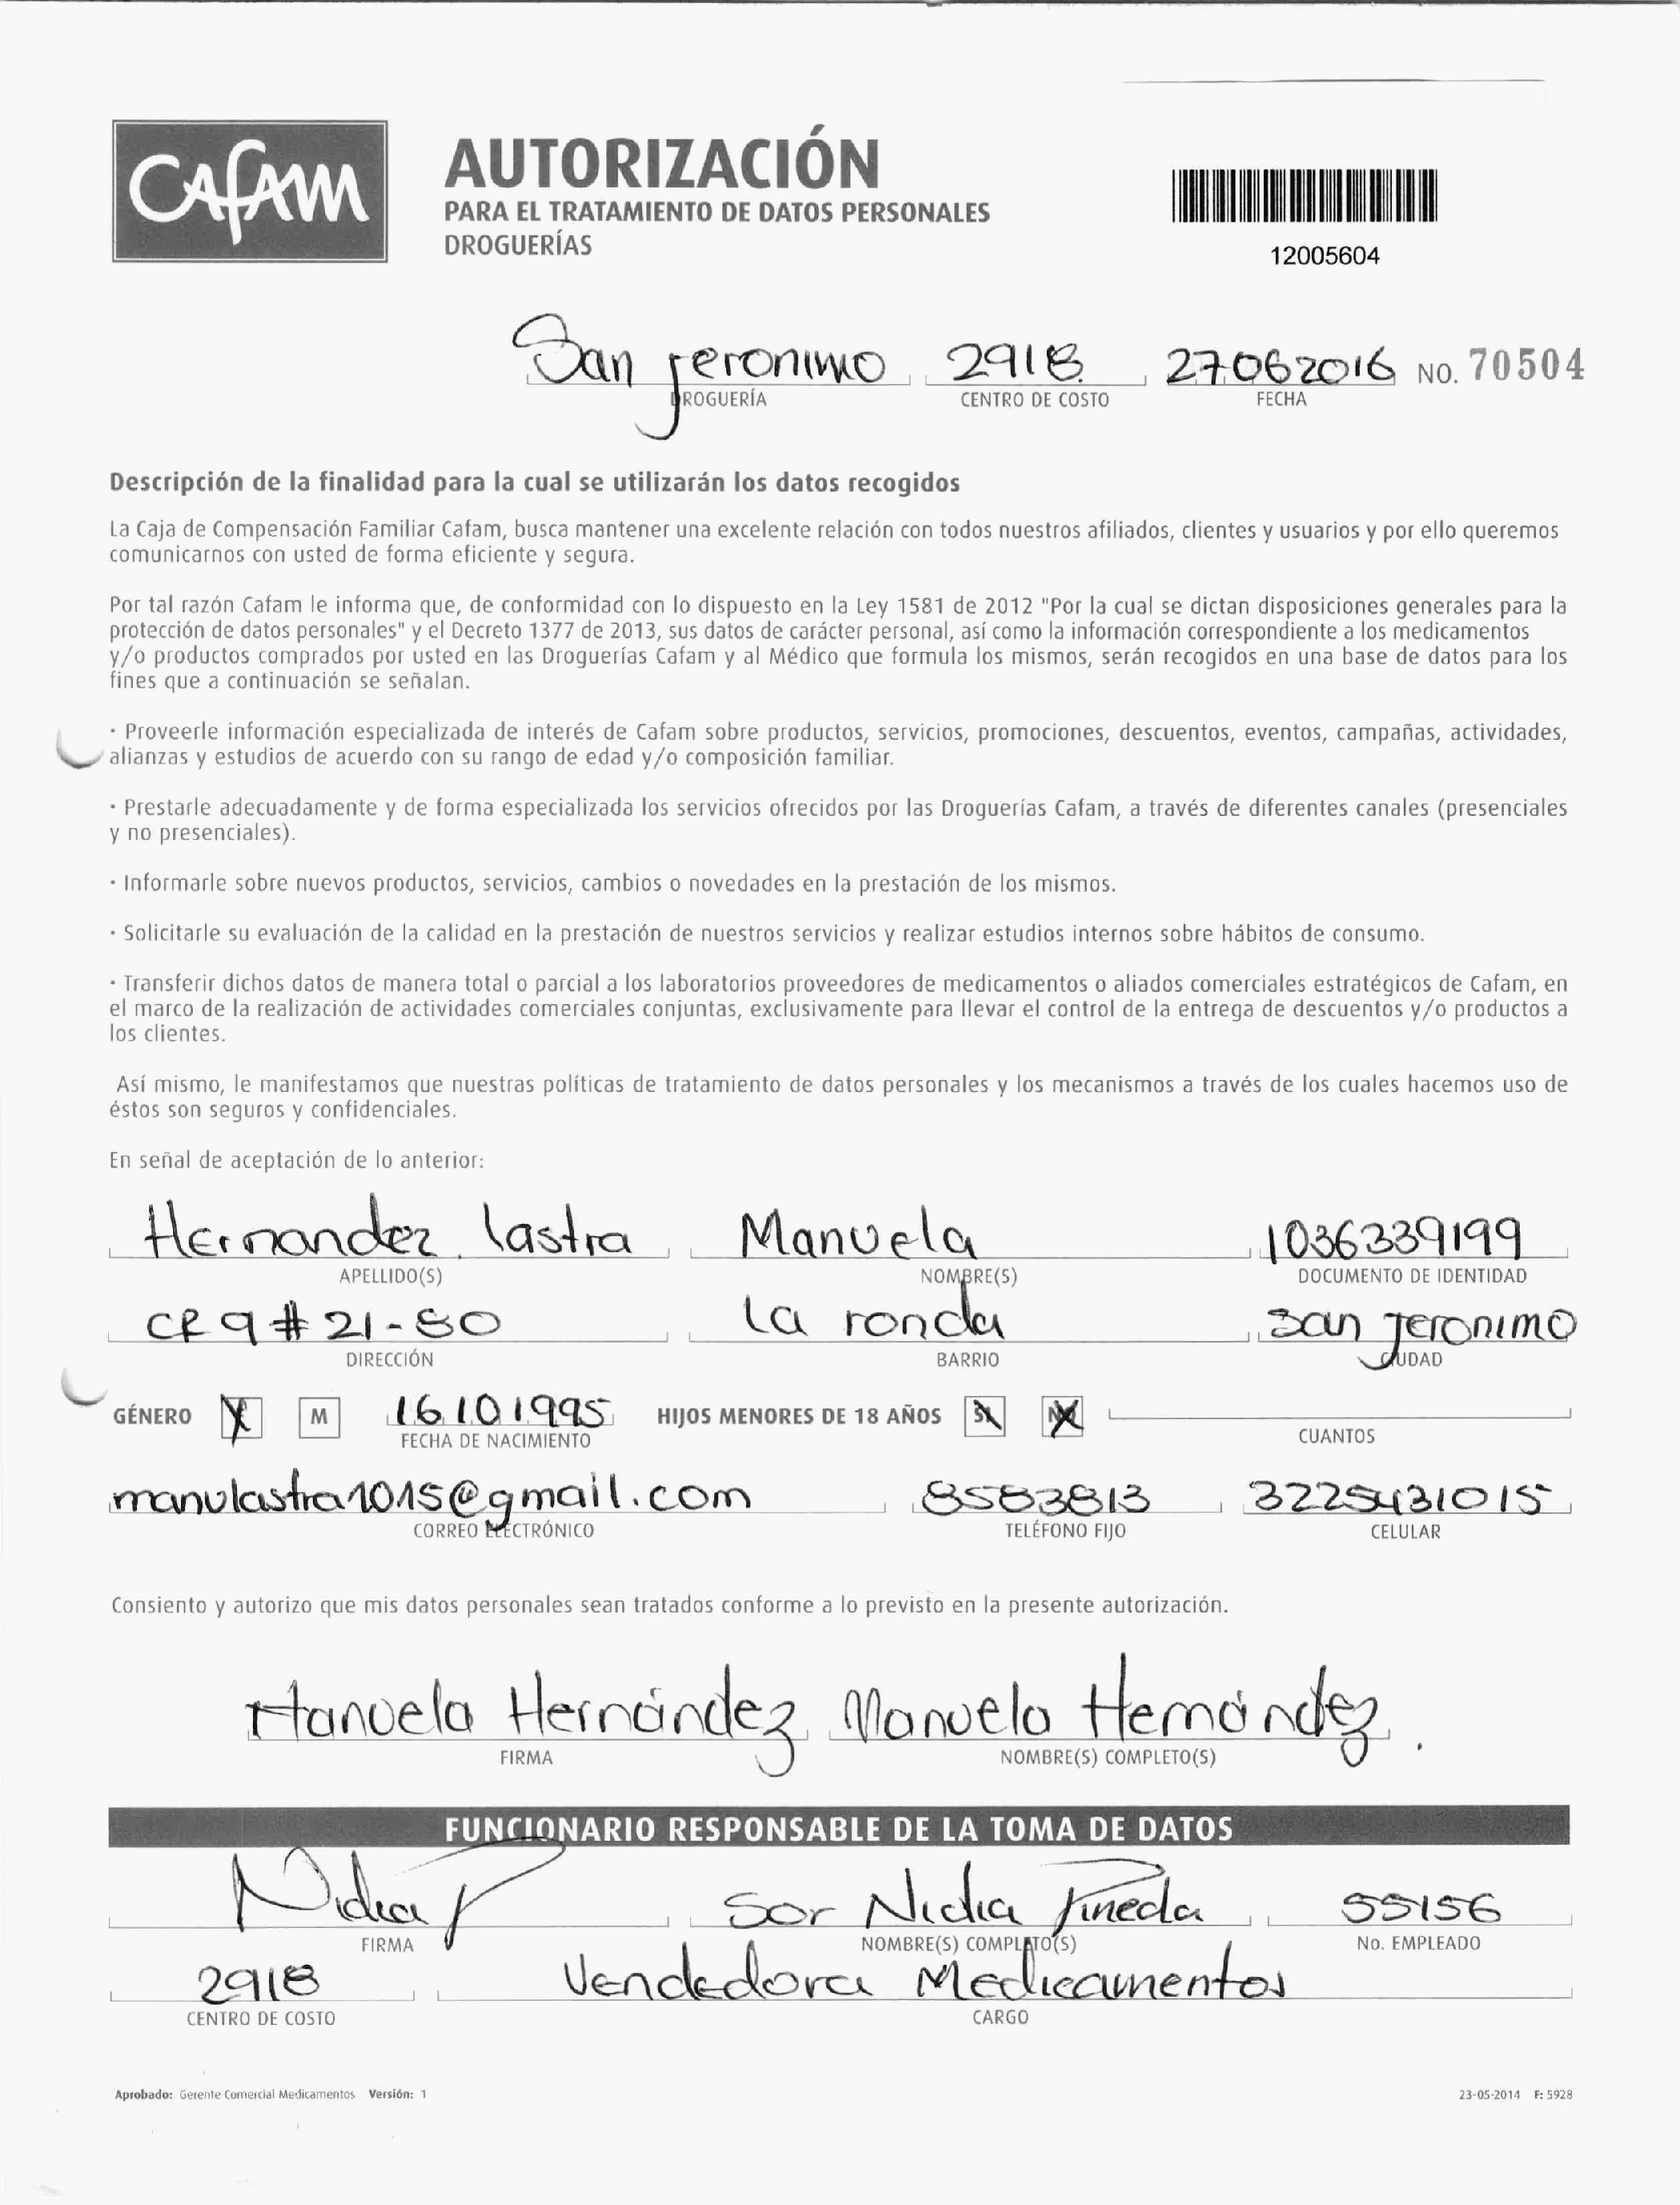 CAFAM
AUTORIZACIÓN
PARA EL TRATAMIENTO DE DATOS PERSONALES
DROGUERÍAS
12005604
San Jeronimo 2918 27062016 NO. 70504
DROGUERÍA CENTRO DE COSTO FECHA
Descripción de la finalidad para la cual se utilizarán los datos recogidos
La Caja de Compensación Familiar Cafam, busca mantener una excelente relación con todos nuestros afiliados, clientes y usuarios y por ello queremos
comunicarnos con usted de forma eficiente y segura.
Por tal razón Cafam le informa que, de conformidad con lo dispuesto en la Ley 1581 de 2012 "Por la cual se dictan disposiciones generales para la
protección de datos personales" y el Decreto 1377 de 2013, sus datos de carácter personal, así como la información correspondiente a los medicamentos
y/o productos comprados por usted en las Droguerías Cafam y al Médico que formula los mismos, serán recogidos en una base de datos para los
fines que a continuación se señalan.
· Proveerle información especializada de interés de Cafam sobre productos, servicios, promociones, descuentos, eventos, campañas, actividades,
alianzas y estudios de acuerdo con su rango de edad y/o composición familiar.
· Prestarle adecuadamente y de forma especializada los servicios ofrecidos por las Droguerías Cafam, a través de diferentes canales (presenciales
y no presenciales).
· Informarle sobre nuevos productos, servicios, cambios o novedades en la prestación de los mismos.
· Solicitarle su evaluación de la calidad en la prestación de nuestros servicios y realizar estudios internos sobre hábitos de consumo.
· Transferir dichos datos de manera total o parcial a los laboratorios proveedores de medicamentos o aliados comerciales estratégicos de Cafam, en
el marco de la realización de actividades comerciales conjuntas, exclusivamente para llevar el control de la entrega de descuentos y/o productos a
los clientes.
Así mismo, le manifestamos que nuestras políticas de tratamiento de datos personales y los mecanismos a través de los cuales hacemos uso de
éstos son seguros y confidenciales.
En señal de aceptación de lo anterior:
Hernandez Lastra Manuela 1036339199
APELLIDO(S) NOMBRE(S) DOCUMENTO DE IDENTIDAD
CR 9 # 21-80 La ronda San Jeronimo
DIRECCIÓN BARRIO CIUDAD
GÉNERO X M 16 10 1995 HIJOS MENORES DE 18 AÑOS SI NO
FECHA DE NACIMIENTO CUANTOS
manulastra1015@gmail.com 8583813 3225431015
CORREO ELECTRÓNICO TELÉFONO FIJO CELULAR
Consiento y autorizo que mis datos personales sean tratados conforme a lo previsto en la presente autorización.
Manuela Hernández Manuela Hernández.
FIRMA NOMBRE(S) COMPLETO(S)
FUNCIONARIO RESPONSABLE DE LA TOMA DE DATOS
Nidia P Sor Nidia Pineda 55156
FIRMA NOMBRE(S) COMPLETO(S) No. EMPLEADO
2918 Vendedora Medicamentos
CENTRO DE COSTO CARGO
Aprobado: Gerente Comercial Medicamentos Versión: 1 23-05-2014 F: 5928